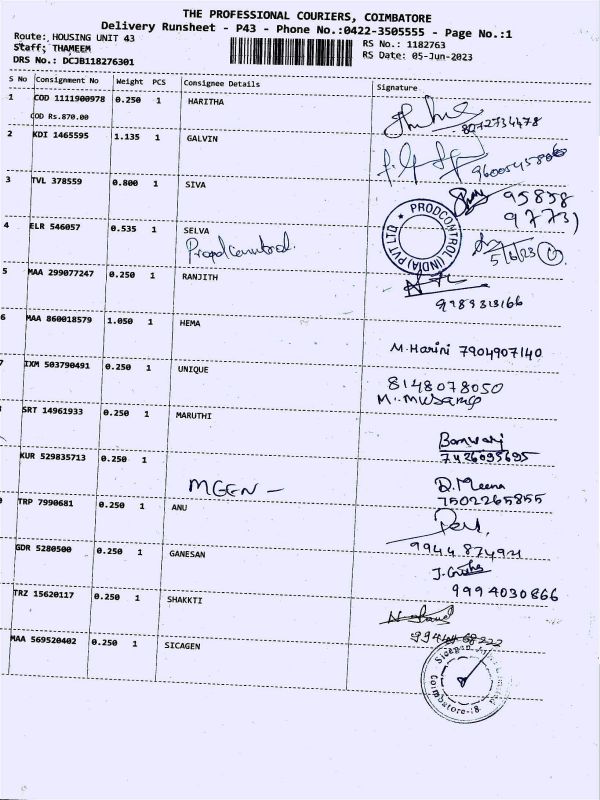 THE PROFESSIONAL COURIERS, COIMBATORE
Delivery Runsheet - P43 - Phone No.:0422-3505555 - Page No.:1
Route: HOUSING UNIT 43
RS No.: 1182763
Staff: THAMEEM
RS Date: 05-Jun-2023
DRS No.: DCJB118276301
S No Consignment No Weight PCS Consignee Details Signature
1 COD 1111900978 0.250 1 HARITHA
8072734478
COD Rs.870.00
2 KDI 1465595 1.135 1 GALVIN
3 TVL 378559 0.800 1 SIVA
95858
97731
PRODCONTROL (INDIA) PVT LTD
4 ELR 546057 0.535 1 SELVA
Prodcontrol.
5/6/23
5 MAA 299077247 0.250 1 RANJITH
9789313166
6 MAA 860018579 1.050 1 HEMA
M.Harini 7904907140
IXM 503790491 0.250 1 UNIQUE
8148078050
SRT 14961933 0.250 1 MARUTHI
Banwari
7426095695
KUR 529835713 0.250 1
MEEN -
D.Meena
7502265855
TRP 7990681 0.250 1 ANU
GDR 5280500 0.250 1 GANESAN
9994030866
TRZ 15620117 0.250 1 SHAKKTI
MAA 569520402 0.250 1 SICAGEN
Sicagen
Coimbatore-18.